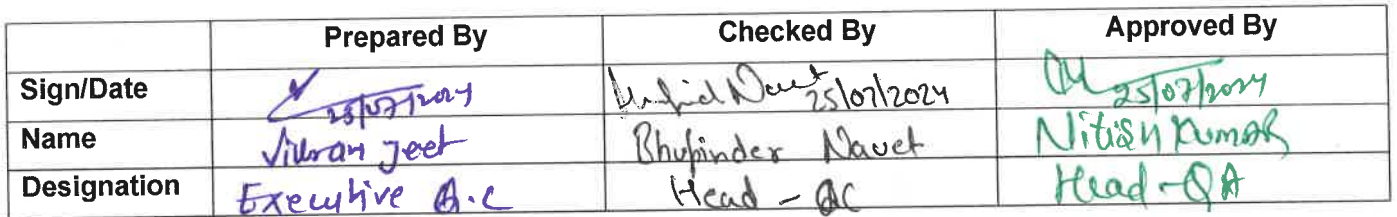 Prepared By Checked By Approved By
Sign/Date 25/07/2024 25/07/2024 25/07/2024
Name Vikram Jeet Bhupinder Navet Nitish Kumar
Designation Executive Q.C Head - QC Head - QA